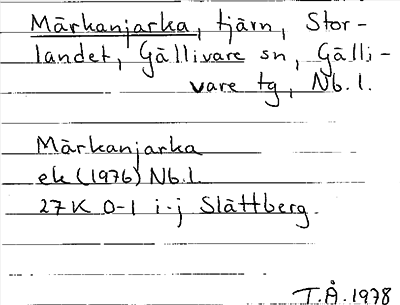 Märkanjarka, tjärn, Stor-
landet, Gällivare sn, Gälli-
vare tg, Nb. l.
Märkanjarka
ek (1976) Nb.l.
27K 0-1 i-j Slättberg.
T.Å. 1978